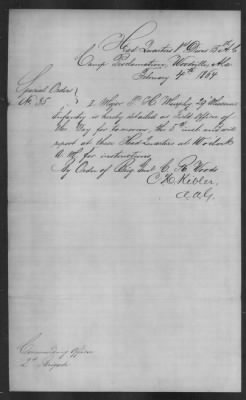 Head Quarters 1st Divn 15th A.C.
Camp Proclamation, Woodville, Ala
February 4th 1864
Special Orders
No. 35
I. Major P. H. Murphy, 29 Missouri
Infantry is hereby detailed as Field Officer of
the Day for tomorrow, the 5th inst and will
report at these Head Quarters at 9 o'clock
A.M. for instructions.
By Order of Brig. Genl C. R. Woods
C. H. Kibler,
A.A.G.
Commanding Officer
2d Brigade